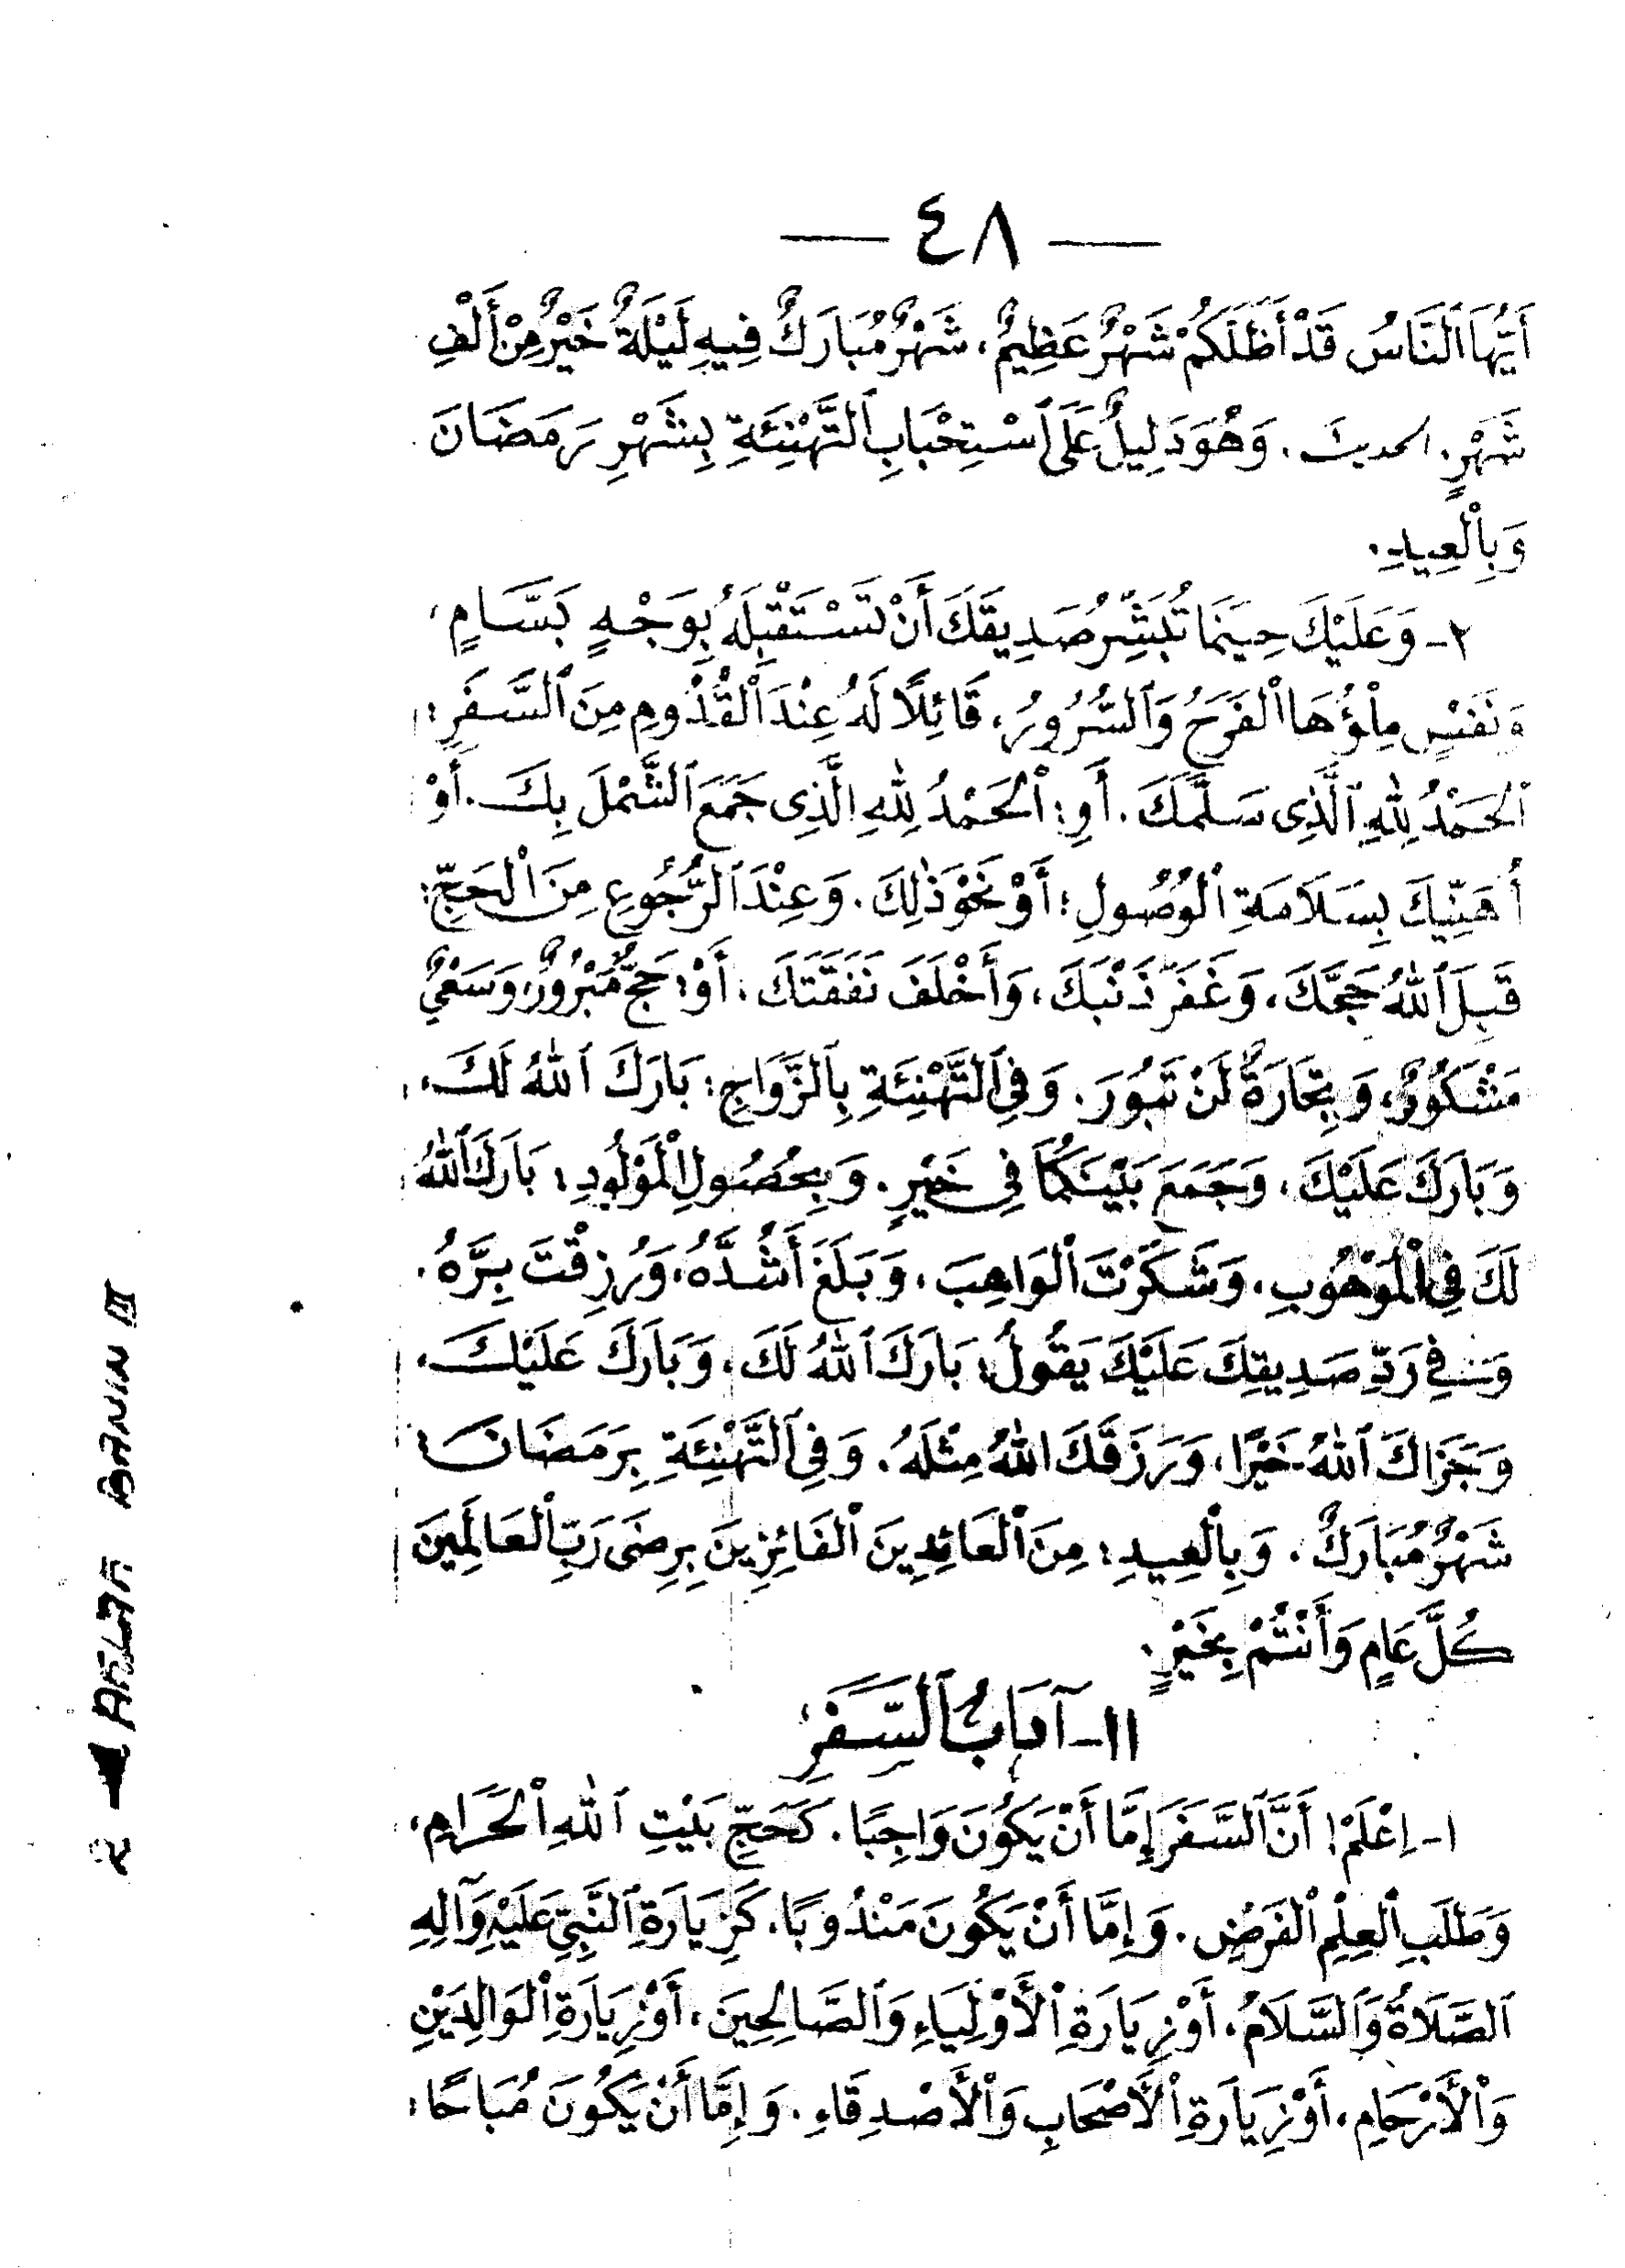 — ٤٨ —
أَيُّهَا ٱلنَّاسُ قَدْ أَظَلَّكُمْ شَهْرٌ عَظِيمٌ، شَهْرٌ مُبَارَكٌ فِيهِ لَيْلَةٌ خَيْرٌ مِنْ أَلْفِ
شَهْرٍ. الحديث. وَهُوَ دَلِيلٌ عَلَى ٱسْتِحْبَابِ ٱلتَّهْنِئَةِ بِشَهْرِ رَمَضَانَ
وَبِٱلْعِيدِ.
٢- وَعَلَيْكَ حِينَمَا تُبَشِّرُ صَدِيقَكَ أَنْ تَسْتَقْبِلَهُ بِوَجْهٍ بَسَّامٍ،
وَنَفْسٍ مِلْؤُهَا ٱلْفَرَحُ وَٱلسُّرُورُ، قَائِلًا لَهُ عِنْدَ ٱلْقُدُومِ مِنَ ٱلسَّفَرِ:
ٱلْحَمْدُ لِلّٰهِ ٱلَّذِى سَلَّمَكَ. أَوِ: ٱلْحَمْدُ لِلّٰهِ الَّذِى جَمَعَ ٱلشَّمْلَ بِكَ. أَوْ
أُهَنِّيكَ بِسَلَامَةِ ٱلْوُصُولِ؛ أَوْ نَحْوَ ذٰلِكَ. وَعِنْدَ ٱلرُّجُوعِ مِنَ ٱلْحَجِّ:
قَبِلَ ٱللّٰهُ حَجَّكَ، وَغَفَرَ ذَنْبَكَ، وَأَخْلَفَ نَفَقَتَكَ. أَوْ: حَجٌّ مَبْرُورٌ، وَسَعْيٌ
مَشْكُورٌ، وَتِجَارَةٌ لَنْ تَبُورَ. وَفِى ٱلتَّهْنِئَةِ بِٱلزَّوَاجِ: بَارَكَ ٱللّٰهُ لَكَ،
وَبَارَكَ عَلَيْكَ، وَجَمَعَ بَيْنَكُمَا فِى خَيْرٍ. وَبِحُصُولِ ٱلْمَوْلُودِ: بَارَكَ ٱللّٰهُ
لَكَ فِى ٱلْمَوْهُوبِ، وَشَكَرْتَ ٱلْوَاهِبَ، وَبَلَغَ أَشُدَّهُ، وَرُزِقْتَ بِرَّهُ.
وَفِي رَدِّ صَدِيقِكَ عَلَيْكَ يَقُولُ: بَارَكَ ٱللّٰهُ لَكَ، وَبَارَكَ عَلَيْكَ،
وَجَزَاكَ ٱللّٰهُ خَيْرًا، وَرَزَقَكَ اللّٰهُ مِثْلَهُ. وَفِى ٱلتَّهْنِئَةِ بِرَمَضَانَ:
شَهْرٌ مُبَارَكٌ. وَبِٱلْعِيدِ: مِنَ ٱلْعَائِدِينَ ٱلْفَائِزِينَ بِرِضَى رَبِّ ٱلْعَالَمِينَ
كُلَّ عَامٍ وَأَنْتُمْ بِخَيْرٍ.
١١- آدَابُ ٱلسَّفَرِ
١- اِعْلَمْ! أَنَّ ٱلسَّفَرَ إِمَّا أَنْ يَكُونَ وَاجِبًا. كَحَجِّ بَيْتِ ٱللّٰهِ ٱلْحَرَامِ،
وَطَلَبِ ٱلْعِلْمِ ٱلْفَرْضِ. وَإِمَّا أَنْ يَكُونَ مَنْدُوبًا، كَزِيَارَةِ ٱلنَّبِيِّ عَلَيْهِ وَآلِهِ
ٱلصَّلَاةُ وَٱلسَّلَامُ، أَوْ زِيَارَةِ ٱلْأَوْلِيَاءِ وَٱلصَّالِحِينَ، أَوْ زِيَارَةِ ٱلْوَالِدَيْنِ
وَٱلْأَرْحَامِ، أَوْ زِيَارَةِ ٱلْأَصْحَابِ وَٱلْأَصْدِقَاءِ. وَإِمَّا أَنْ يَكُونَ مُبَاحًا:
AHLAK BANIN III